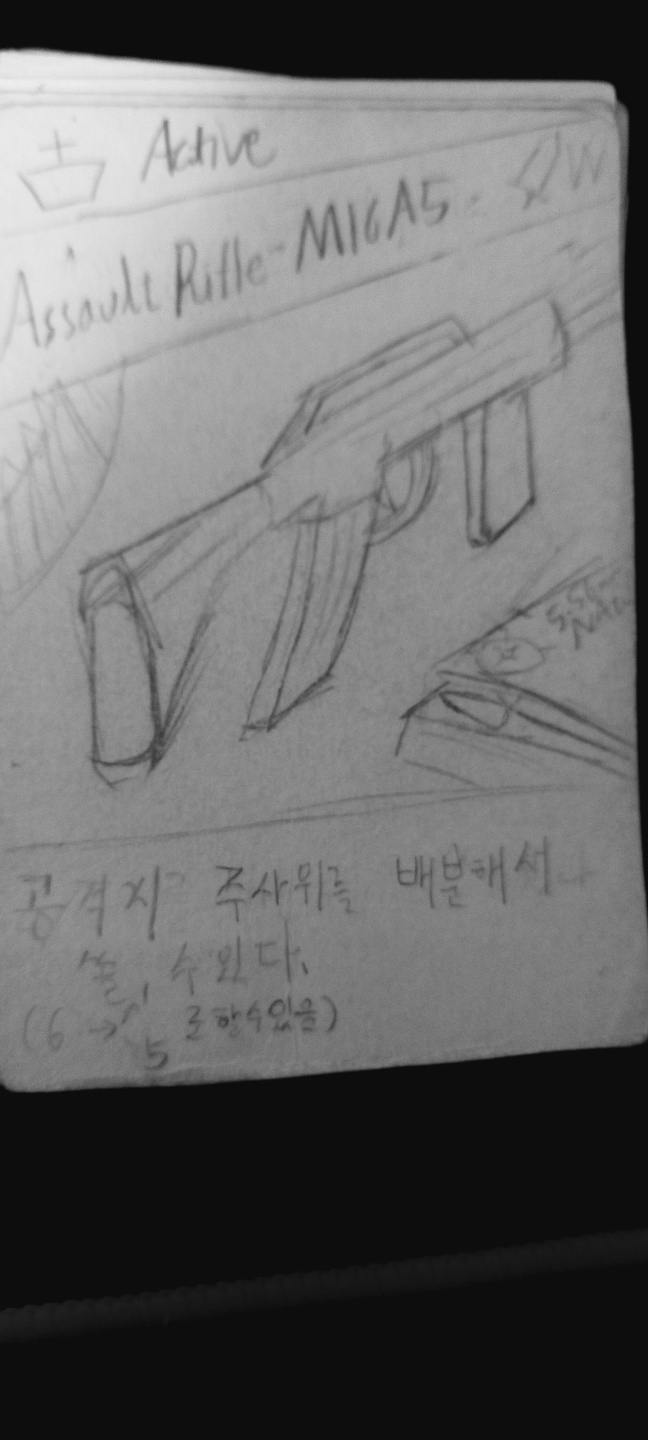 Active
Assault Rifle-M16A5
W
5.56
Nato
공격시 주사위를 배분해서
쓸 수 있다.
(6 → 1, 5 로 할 수 있음)